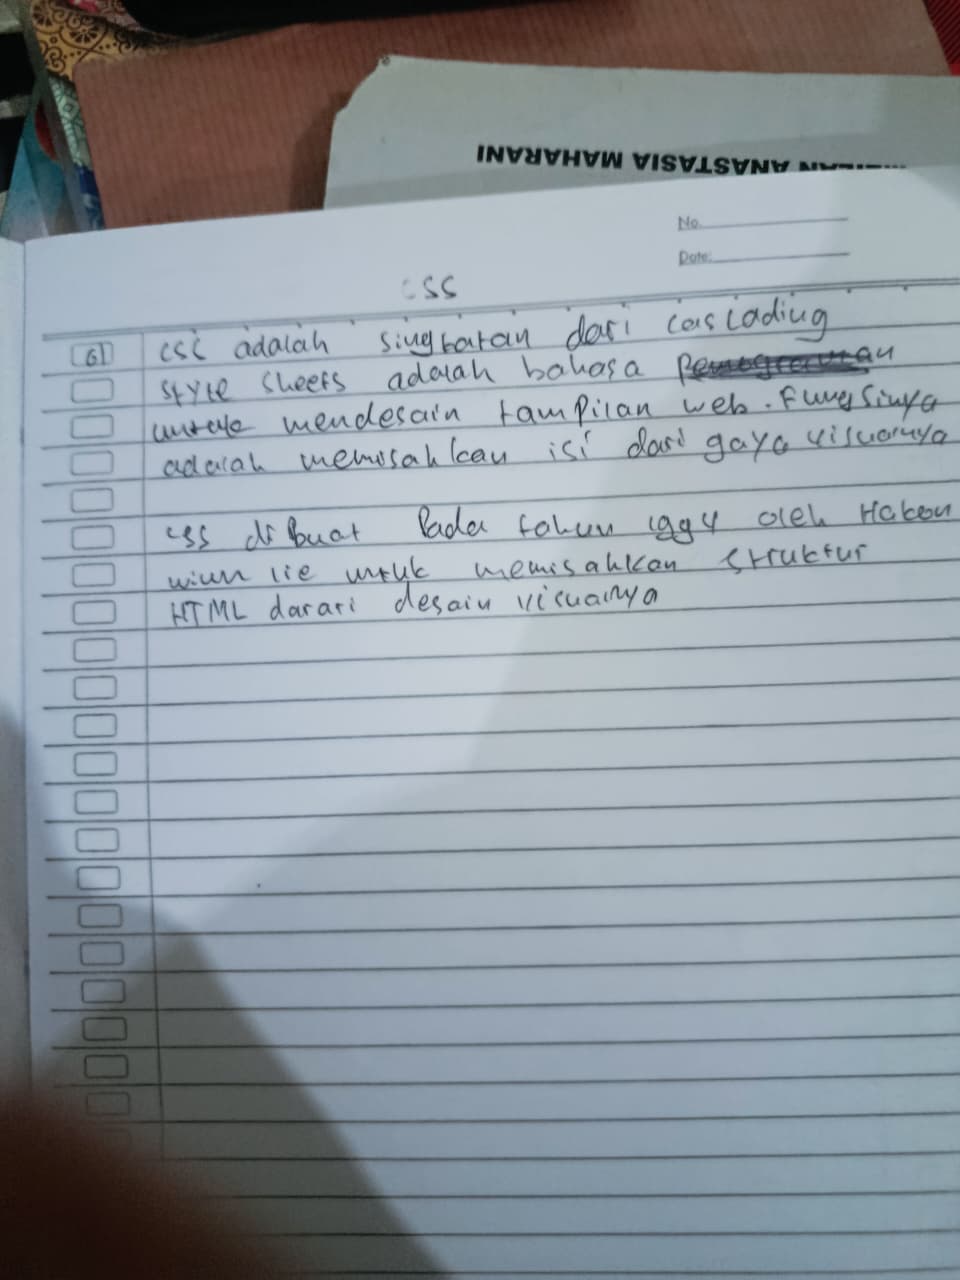 ANASTASIA MAHARANI
No.
Date:
CSS
61
CSC adalah singkatan dari Cascading
Style Sheets adalah bahasa
untuk mendesain tampilan web. Fungsinya
adalah memisahkan isi dari gaya visualnya
CSS dibuat Pada tahun 1994 oleh Hakon
wium lie untuk memisahkan struktur
HTML darari desain visualnya